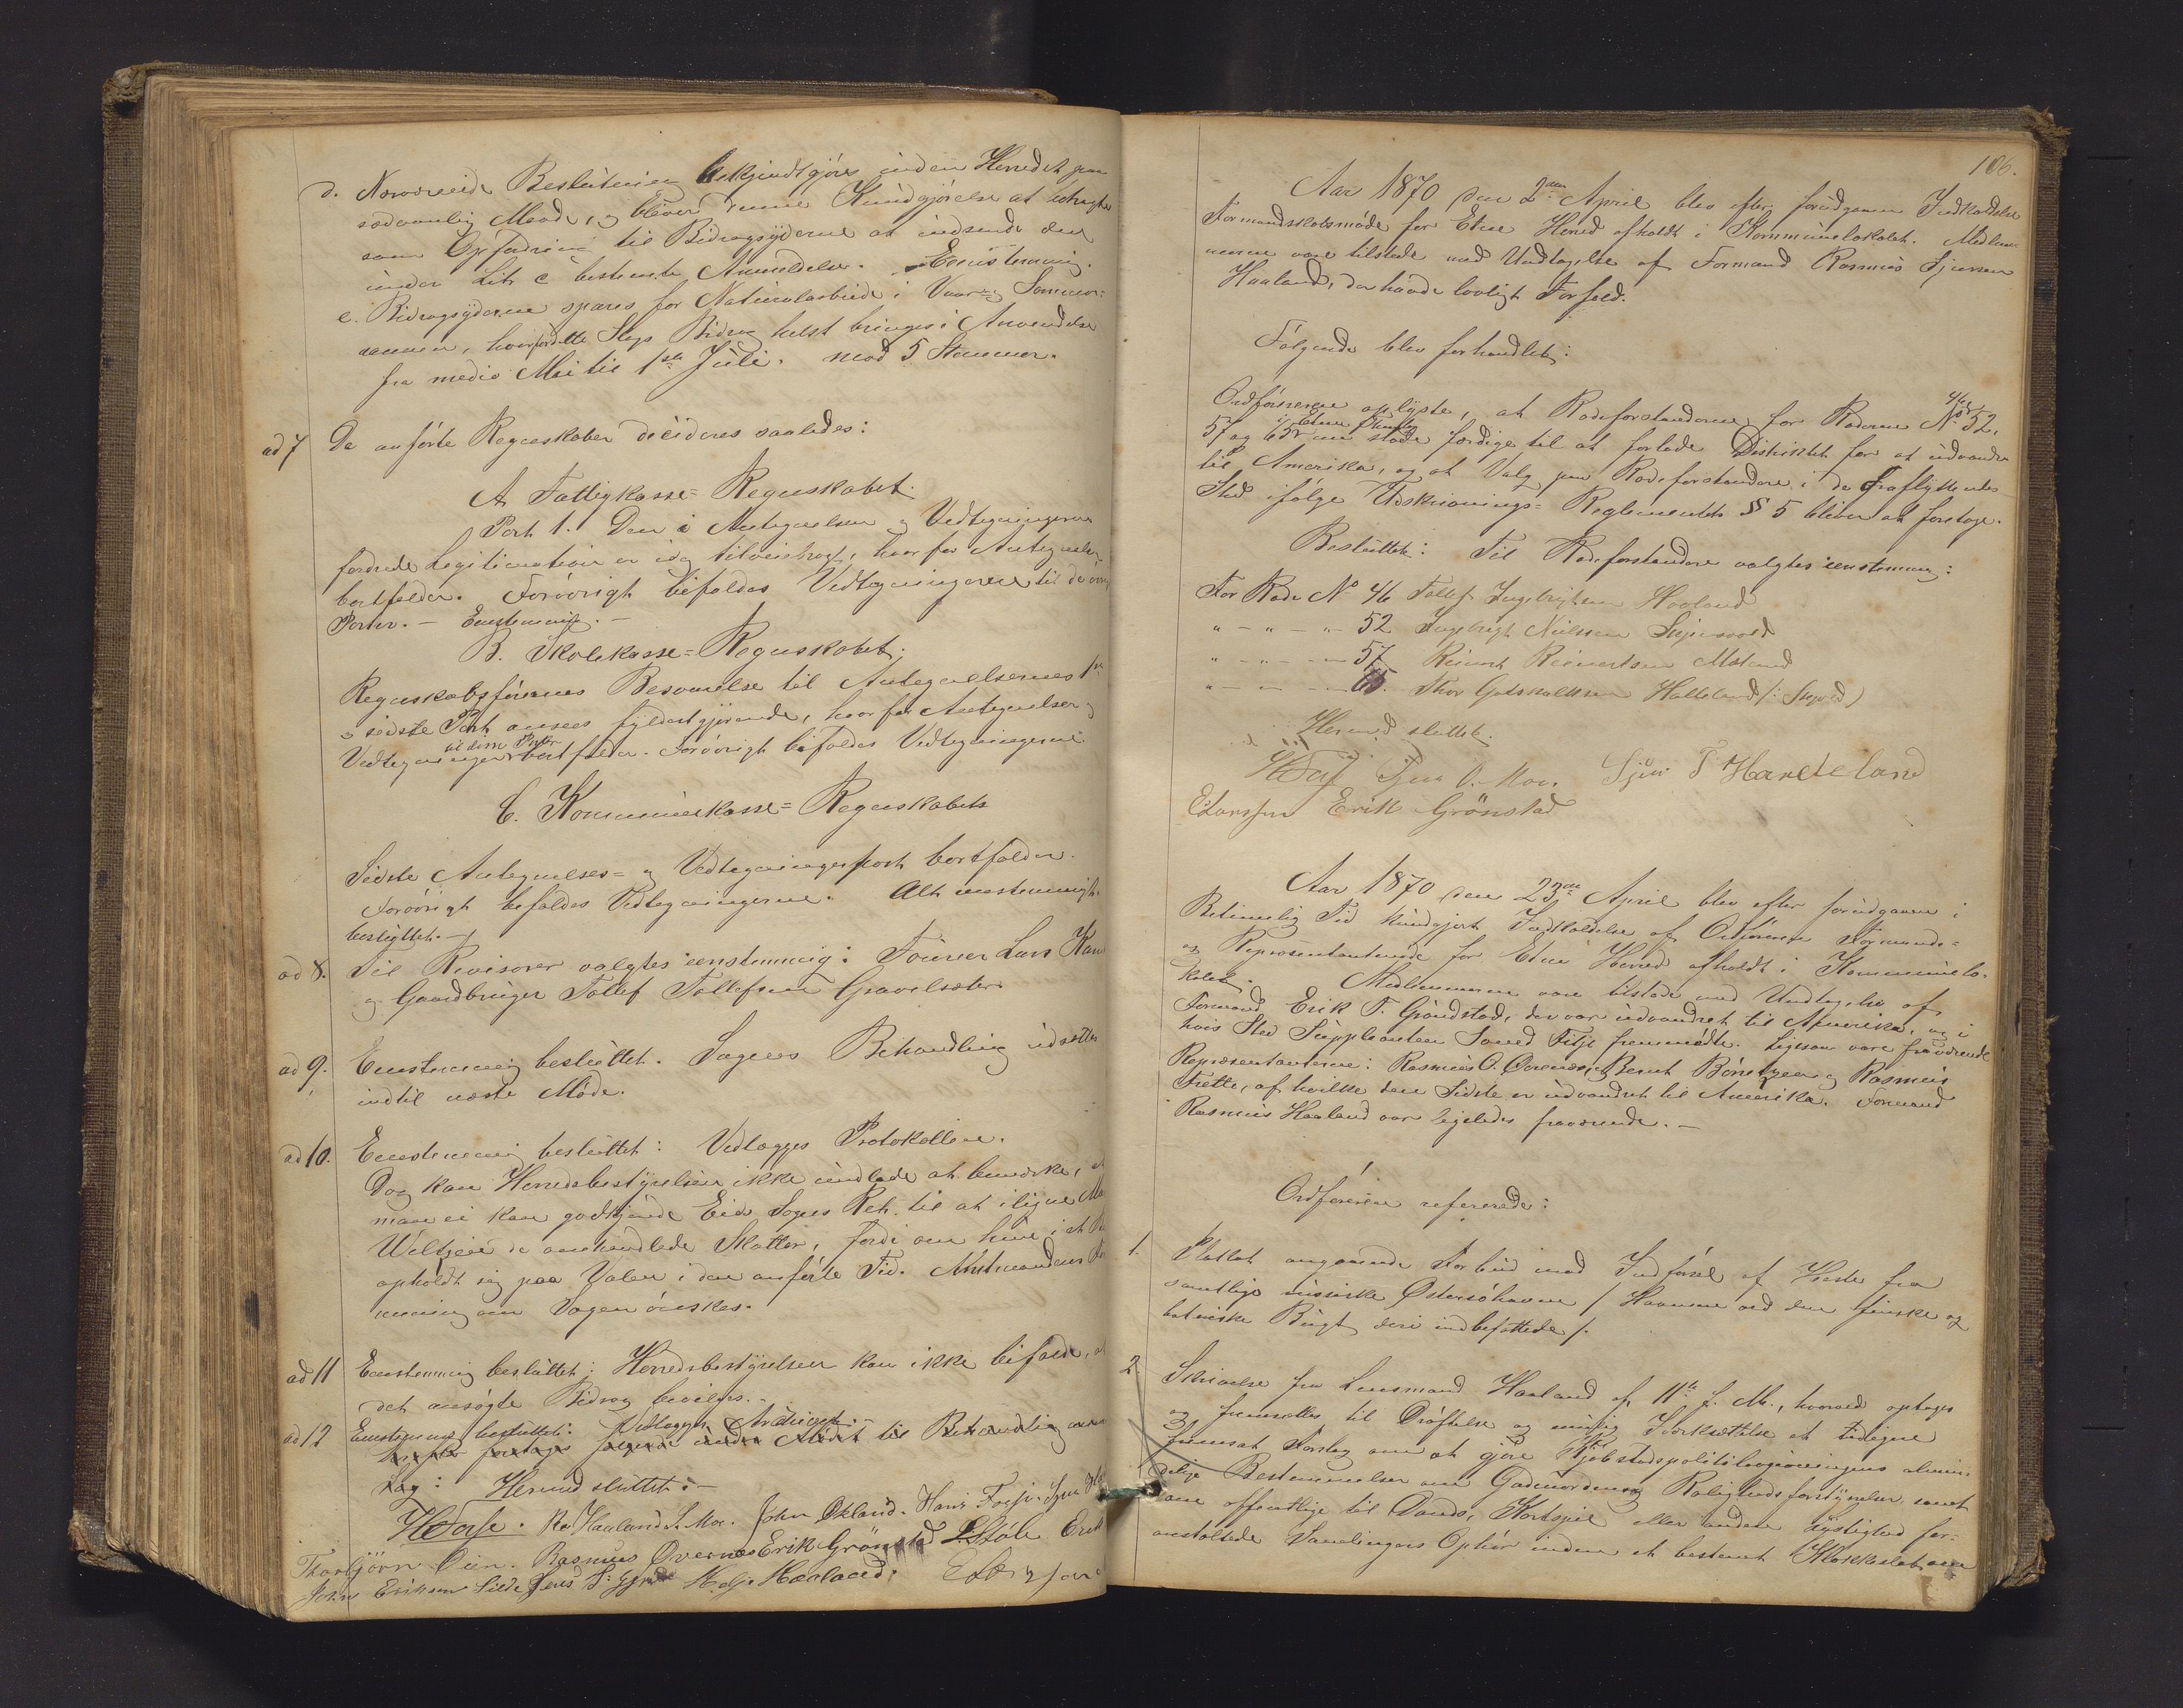 d. Nærværende Beslutning bekjendtgjøres inden Herredet paa
sædvanlig Maade, og bliver denne Kundgjørelse at betragte
som Opfordring til Bidragsyderne at indsende den
under Litr c bestemte Anmeldelse. Eenstemmig.
e. Bidragsyderne spares for Naturalarbeide i Vaar og Sommer-
aannen, hvorfor dette Slags Bidrag helst bringes i Anvendelse
fra medio Mai til 1ste Juli. mod 5 Stemmer.
ad 7 De anførte Regnskaber decideres saaledes:
A Fattigkasse-Regnskabet.
Post 1. Den i Antegnelsen og Vedtegningerne
fordrede Legitimation er idag tilveiebragt, hvorfor Antegnelsen
bortfalder. Forøvrigt bifaldes Vedtegningerne til de øvrige
Poster. - Eenstemmigt. -
B. Skolekasse-Regnskabet.
Regnskabsførerens Besvarelse til Antegnelsernes 1ste
og sidste Post ansees fyldestgjørende, hvorfor Antegnelser og
til disse Poster
Vedtegninger bortfalder. Forøvrigt bifaldes Vedtegningerne
C. Kommunekasse-Regnskabet
Sidste Antegnelses- og Vedtegningspost bortfalder.
Forøvrigt bifaldes Vedtegningerne. Alt eenstemmigt
besluttet. -
ad 8. Til Revisorer valgtes eenstemmig: Fourer Lars
og Gaardbruger Tollef Tollefsen Gravelsæter.
ad 9. Eenstemmig besluttet. Sagens Behandling udsættes
indtil næste Møde.
ad 10. Eenstemmig besluttet: Vedlægges Protokollen.
Dog kan Herredsbestyrelsen ikke undlade at bemærke, at
man ei kan godkjende Eids Sogns Ret til at iligne
de omhandlede Skatter, fordi om hun i et
opholdt sig paa Valen i den anførte Tid. Amtmandens
mening om Sagen ønskes.
ad 11 Eenstemmig besluttet: Herredsbestyrelsen kan ikke bifalde, at
det ansøgte Bidrag bevilges. -
ad 12 Eenstemmig besluttet: Vedlægges Archivet.
foretages under Mødet til Behandling
Sag: Hermed sluttet. -
R. Haaland. John Økland. Hans
Thorbjörn Øien. Rasmus Øvernes Erik Grönstad L. Støle Erik
John Eriksen Silde Jens Helje Haaland.
106.
Aar 1870 den 2den April blev efter forudgaaen Indkaldelse
Formandskabsmøde for Etne Herred afholdt i Kommunelokalet. Medlem-
merne vare tilstede med Undtagelse af Formand Rasmus Sjursen
Haaland, der havde lovligt Forfald.
Følgende blev forhandlet:
Ordføreren oplyste, at Rodeforstanderne for Roderne No 46, 52,
i Etne Thinglag
57 og 65 nu stode færdige til at forlade Distriktet for at udvandre
til Amerika, og at Valg paa Rodeforstandere i de fraflyttendes
Sted ifølge Udskrivnings-Reglementets § 5 bliver at foretage.
Besluttet: Til Rodeforstandere valgtes eenstemmig:
For Rode No 46 Tollef Ingebrigtsen Haaland
" - " - " - 52 Ingebrigt Nielsen
" - " - " - 57 Reinert Reinertsen Østrand
" - " - " - 65. Thor Gotskalksen Halleland
Hermed sluttet.
Sjur T Handeland
Erik Grönstad
Aar 1870 den 23de April blev efter forudgaaen i
Betimelig Tid kundgjort Indkaldelse af Ordføreren Formands-
og Repræsentantmøde for Etne Herred afholdt i Kommunelo-
kalet. Medlemmerne vare tilstede med Undtagelse af
Formand Erik T. Grønstad, der var udvandret til Amerika, og i
hvis Sted Suppleanten Fitje fremmødte. Ligesom vare fraværende
Repræsentanterne: Rasmus O. Øvernes, Bernt Børretzen og Rasmus
Frette, af hvilke den Sidste er udvandret til Amerika. Formand
Rasmus Haaland var ligeledes fraværende. -
Ordføreren refererede:
1. Plakat angaaende Forbud mod Indførsel af Heste fra
samtlige russiske Østersøhavne / Havnene ved den finske og
botniske Bugt deri indbefattede /.
2. Skrivelse fra Lensmand Haaland af 11te f. M., hvorved optages
og fremsættes til Drøftelse og mulig Iverksættelse et tidligere
fremsat Forslag om at gjøre Kjøbstadspolitilovgivningens almin-
delige Bestemmelser om Gadeuorden og Rolighedsforstyrrelser, samt
om offentlige til Dands, Kortspil eller anden Lystighed for-
anstaltede Samlingers Ophør inden et bestemt Klokkeslet om